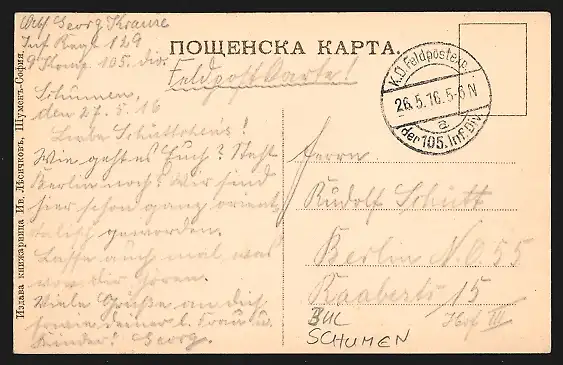 Georg Krause
Inf Regt 129
9 Komp. 105. Div.
ПОЩЕНСКА КАРТА.
Feldpostkarte!
K.D. Feldpostexp.
26.5.16. 5-6 N
a
der 105. Inf. Div.
Schumen,
den 27.5.16
Liebe
Wie geht es Euch? Steht
Berlin noch? Wir sind
hier schon ganz orient
talisch geworden.
Lasse auch mal was
von dir hören.
Viele Grüße an dich
sowie deiner l. Frau u.
Kinder! Georg.
Herrn
Rudolf Schütt
Berlin N.O. 55
15
Hof III
BUL
SCHUMEN
Издава книжарница Ив. Лѣсичковъ, Шуменъ-София.